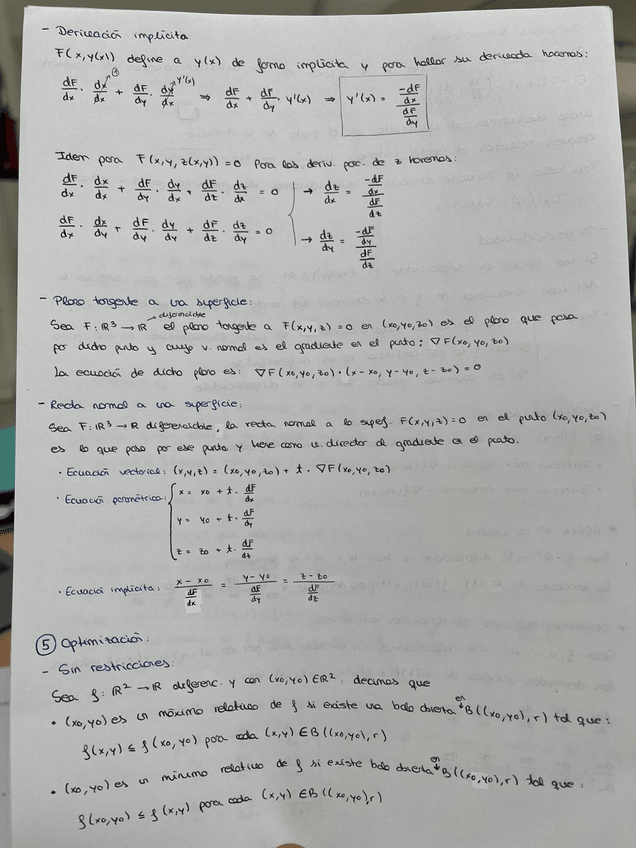 - Derivación implícita
F(x,y(x)) define a y(x) de forma implícita y para hallar su derivada hacemos:
dF/dx · dx/dx ↗① + dF/dy · dy/dx ↗y'(x) ⇒ dF/dx + dF/dy · y'(x) ⇒ y'(x) = (-dF/dx)/(dF/dy)
Idem para F(x,y,z(x,y)) = 0 Para las deriv. parc. de z haremos:
dF/dx · dx/dx + dF/dy · dy/dx + dF/dz · dz/dx = 0 → dz/dx = (-dF/dx)/(dF/dz)
dF/dx · dx/dy + dF/dy · dy/dy + dF/dz · dz/dy = 0 → dz/dy = (-dF/dy)/(dF/dz)
- Plano tangente a una superficie:
Sea F: ℝ³ → ℝ diferenciable el plano tangente a F(x,y,z) = 0 en (x0,y0,z0) es el plano que pasa
por dicho punto y cuyo v. normal es el gradiente en el punto: ∇F(x0, y0, z0)
La ecuación de dicho plano es: ∇F(x0, y0, z0) · (x - x0, y - y0, z - z0) = 0
- Recta normal a una superficie:
Sea F: ℝ³ → ℝ diferenciable, la recta normal a la supef. F(x,y,z) = 0 en el punto (x0, y0, z0)
es la que pasa por ese punto y tiene como v. director al gradiente en el punto.
· Ecuación vectorial: (x,y,z) = (x0, y0, z0) + t · ∇F(x0, y0, z0)
· Ecuación paramétrica: { x = x0 + t · dF/dx
y = y0 + t · dF/dy
z = z0 + t · dF/dz
· Ecuación implícita: (x - x0)/(dF/dx) = (y - y0)/(dF/dy) = (z - z0)/(dF/dz)
⑤ Optimización:
- Sin restricciones:
Sea f: ℝ² → ℝ diferenc. y con (x0, y0) ∈ ℝ²: decimos que
· (x0, y0) es un máximo relativo de f si existe una bola abierta en B((x0, y0), r) tal que:
f(x,y) ≤ f(x0, y0) para cada (x,y) ∈ B((x0, y0), r)
· (x0, y0) es un mínimo relativo de f si existe bola abierta en B((x0, y0), r) tal que:
f(x0, y0) ≤ f(x,y) para cada (x,y) ∈ B((x0, y0), r)